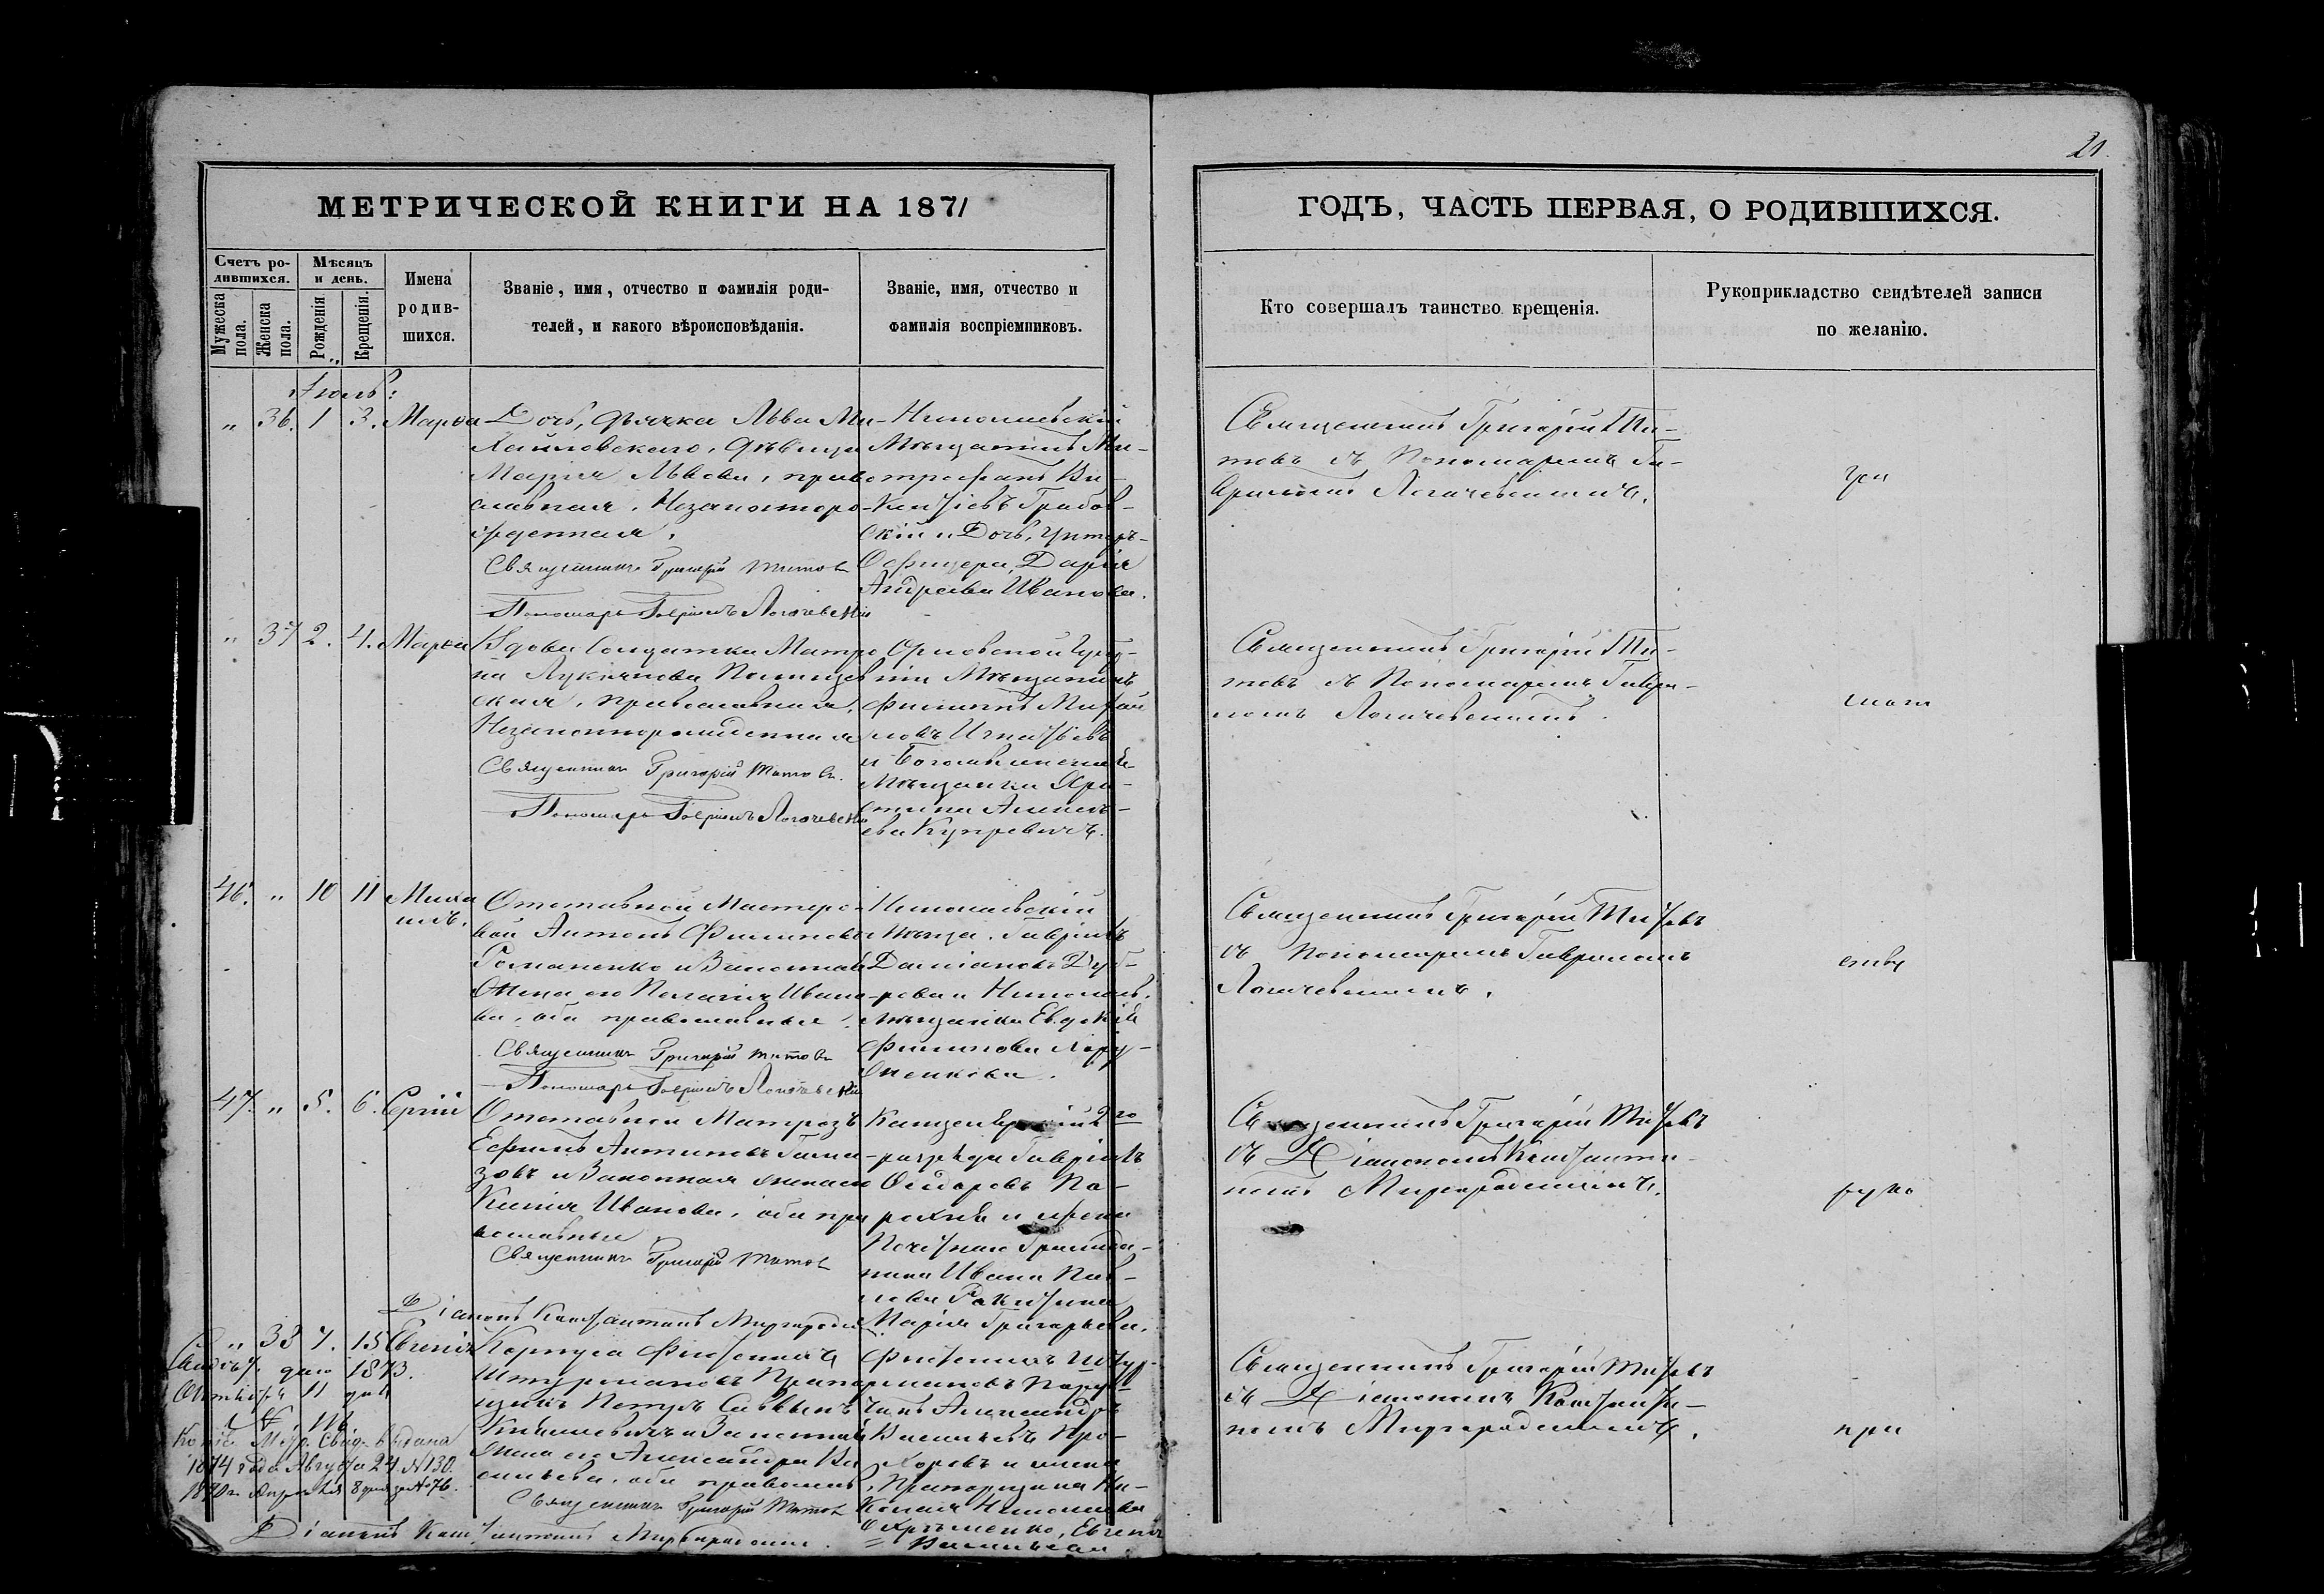 21.
МЕТРИЧЕСКОЙ КНИГИ НА 1871
Счетъ ро-
дившихся.
Мужеска пола.
Женска пола.
Мѣсяцъ
и день.
Рожденія.
Крещенія.
Имена
родив-
шихся.
Званіе, имя, отчество и фамилія роди-
телей, и какого вѣроисповѣданія.
Званіе, имя, отчество и
фамилія воспріемниковъ.
ГОДЪ, ЧАСТЬ ПЕРВАЯ, О РОДИВШИХСЯ.
Кто совершалъ таинство крещенія.
Рукоприкладство свидѣтелей записи
по желанію.
Іюль:
" 36. 1 3. Марѳа
Дочь, дьячка Льва Ми-
хайловскаго, дѣвица
Марія Львова, право
славная. Незаконоро-
жденная.
Священникъ Григорій Титовъ
Пономарь Гавріилъ Логачевскій
Николаевскій
Мѣщанинъ Ми-
трофанъ Ви-
кентіевъ Грабов-
скій и Дочь, Унтеръ-
Офицера, Дарія
Андреева Иванова.
Священникъ Григорій Ти-
товъ съ Пономаремъ Га-
вриломъ Логачевскимъ.
" 37 2. 4. Марѳа
Вдова Солдатка Матро
на Лукіянова
ская, православная,
Незаконнорожденная
Священникъ Григорій Титовъ.
Пономарь Гавріилъ Логачевскій
Орловской Губер-
ніи Мѣщанинъ
Филиппъ Михай
ловъ Игнатьевъ
и
Мѣщанка Хри-
стина Алексѣ-
ева Купревичъ.
Священникъ Григорій Ти-
товъ съ Пономаремъ Гаври-
ломъ Логачевскимъ.
46. " 10 11 Миха
илъ.
Отставной Мастеро-
вой Антонъ Филиповъ
Романенко и Законная
Жена его Пелагія Ивано-
ва, оба православные.
Священникъ Григорій Титовъ
Пономарь Гавріилъ Логачевскій
Николаевскій
Мѣща. Гавріилъ
Даміановъ Дуб-
рова и Николаев.
мѣщанка Евдокія
Филипова
Священникъ Григорій Титовъ
съ Пономаремъ Гавриломъ
Логачевскимъ.
47. " 5. 6. Сергій
Отставной Матрозъ
Ефимъ Антиповъ
зовъ и Законная жена его
Ксенія Ивановa, оба пра
вославные
Священникъ Григорій Титовъ
Діаконъ Константинъ Миргородскій
Канцелярскій 2го
разряда Гавріилъ
Федоровъ По-
и жена
Почетнаго Гражда-
нина Ивана Пав-
лова Ракитина
Марія Григорьева.
Священникъ Григорій Титовъ
съ Діакономъ Константи-
номъ Миргородскимъ.
руко
" 38 7. 15 Евгенія
Корпуса Флотскихъ
Штурмановъ Прапор
щикъ Петръ Саввинъ
и Законная
Жена его Александра Ва
сильева, оба православ.
Священникъ Григорій Титовъ
Діаконъ Константинъ Миргородскій.
Флотскихъ Штур-
мановъ Пору-
чикъ Александръ
Васильевъ Про-
хоровъ и жена
Прапорщика Ни-
колая Николаева
Охрѣменко, Евгенія
Васильева
Священникъ Григорій Титовъ
съ Діакономъ Константи-
номъ Миргородскимъ.
при
1873.
Октября 11 дня
Копія Метр. Свид. выдана
1874 года Августа 24 №130.
Апрѣля 8 дня за №76.